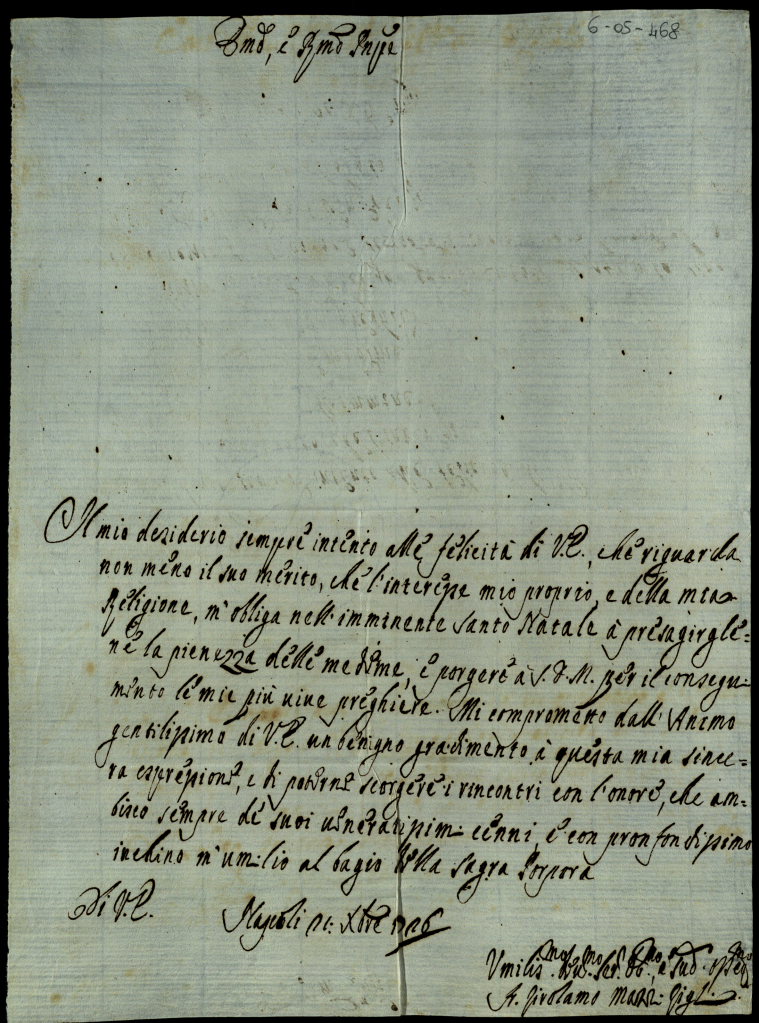 6-05-468
Em̃o, e Rm̃o Prñpe
Il mio desiderio sempre intento alle felicità di V.E., che riguarda
non meno il suo merito, che l'interesse mio proprio, e della mia
Religione, m'obliga nell'imminente Santo Natale à presagirgle=
ne la pienezza delle medeme, e porgere à S.D.M. per il consegui-
mento le mie più vive preghiere. Mi comprometto dall'Animo
gentilissimo di V.E. un benigno gradimento à questa mia since=
ra espressione, e di poterne scorgere i rincontri con l'onore, che am=
bisco sempre de suoi veneratissimi cenni, e con pronfondissimo
inchino m'umilio al bagio della Sagra Porpora
Di V.E.
Napoli 21: Xbre 1726
Umilis.mo Dev.mo Ser. Ob.mo, e Sud.
F. Girolamo